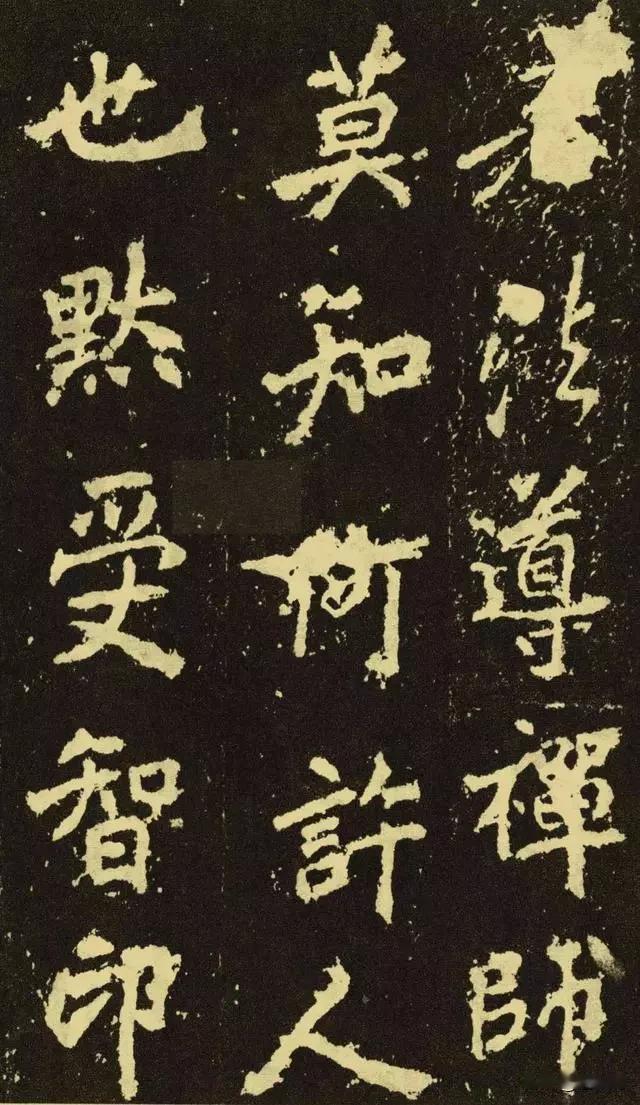 者法導禪師
莫知何許人
也默受智印